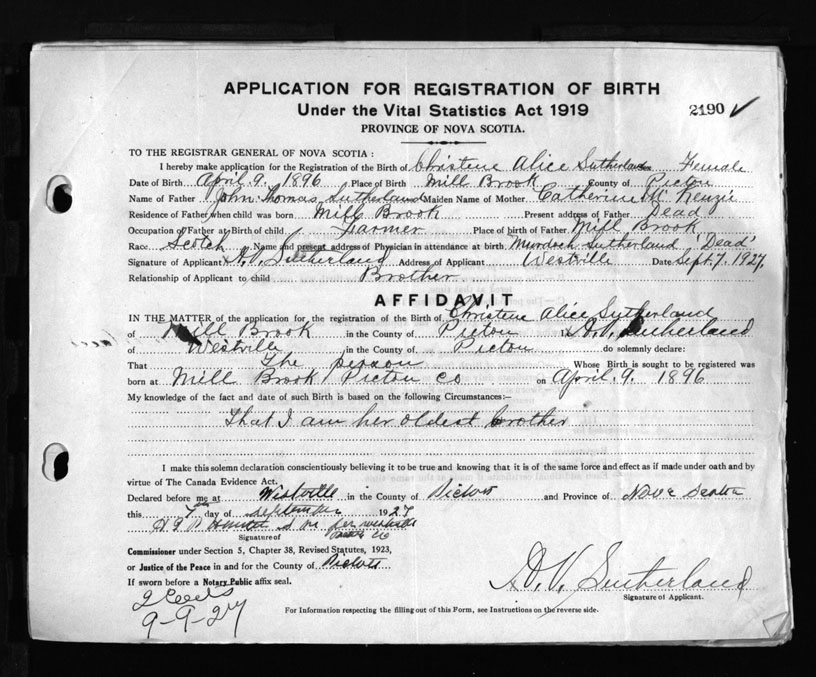 APPLICATION FOR REGISTRATION OF BIRTH
Under the Vital Statistics Act 1919
2190 ✓
PROVINCE OF NOVA SCOTIA.
TO THE REGISTRAR GENERAL OF NOVA SCOTIA:
I hereby make application for the Registration of the Birth of Christene Alice Sutherland Female
Date of Birth April 9. 1896 Place of Birth Mill Brook County of Pictou
Name of Father John Thomas Sutherland Maiden Name of Mother Catherine McKenzie
Residence of Father when child was born Mill Brook Present address of Father Dead
Occupation of Father at Birth of child Farmer Place of birth of Father Mill Brook
Race Scotch Name and present address of Physician in attendance at birth Murdoch Sutherland 'Dead'
Signature of Applicant D.V. Sutherland Address of Applicant Westville Date Sept. 7. 1927.
Relationship of Applicant to child Brother
AFFIDAVIT
IN THE MATTER of the application for the registration of the Birth of Christene Alice Sutherland
of Mill Brook in the County of Pictou I, D.V. Sutherland
of Westville in the County of Pictou do solemnly declare:
That The person Whose Birth is sought to be registered was
born at Mill Brook Pictou Co on April. 9. 1896
My knowledge of the fact and date of such Birth is based on the following Circumstances:—
That I am her oldest brother
I make this solemn declaration conscientiously believing it to be true and knowing that it is of the same force and effect as if made under oath and by
virtue of The Canada Evidence Act.
Declared before me at Westville in the County of Pictou and Province of Nova Scotia
this 7th day of September 1927
Signature of
Commissioner under Section 5, Chapter 38, Revised Statutes, 1923,
or Justice of the Peace in and for the County of Pictou
If sworn before a Notary Public affix seal.
D.V. Sutherland
Signature of Applicant.
9-9-27
For Information respecting the filling out of this Form, see Instructions on the reverse side.